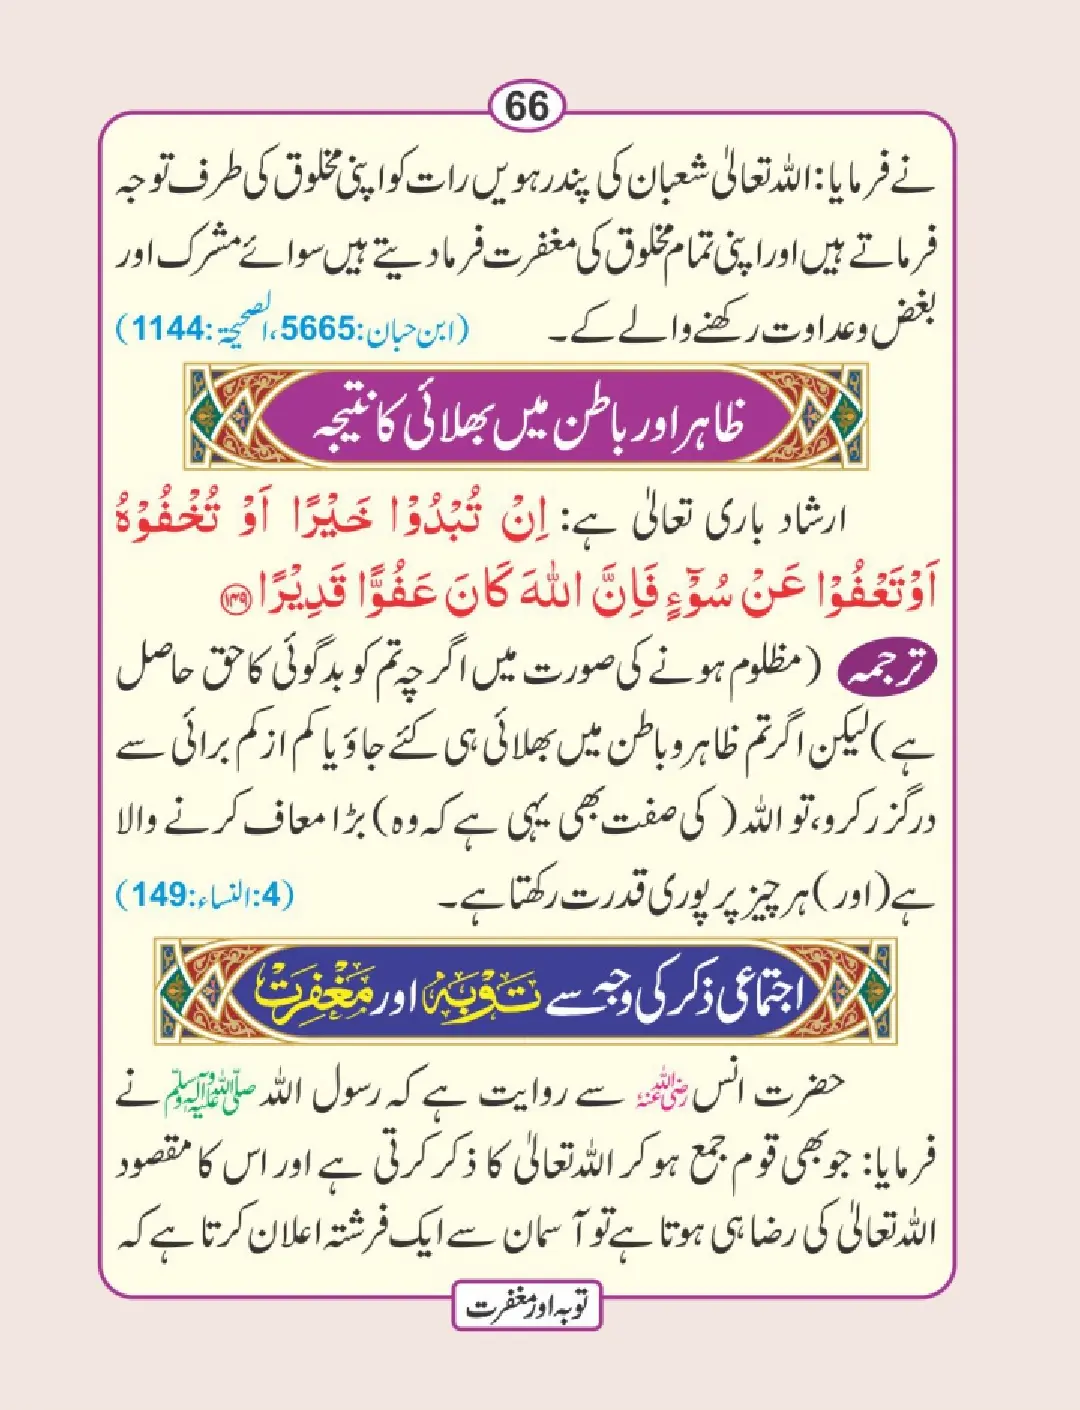 66
نے فرمایا: اللہ تعالیٰ شعبان کی پندرہویں رات کو اپنی مخلوق کی طرف توجہ
فرماتے ہیں اور اپنی تمام مخلوق کی مغفرت فرما دیتے ہیں سوائے مشرک اور
بغض وعداوت رکھنے والے کے۔ (ابن حبان:5665، الصحیحۃ:1144)
ظاہر اور باطن میں بھلائی کا نتیجہ
ارشاد باری تعالیٰ ہے: اِنْ تُبْدُوْا خَیْرًا اَوْ تُخْفُوْهُ
اَوْ تَعْفُوْا عَنْ سُوْٓءٍ فَاِنَّ اللهَ كَانَ عَفُوًّا قَدِیْرًا ۝۱۴۹
ترجمہ (مظلوم ہونے کی صورت میں اگرچہ تم کو بدگوئی کا حق حاصل
ہے) لیکن اگر تم ظاہر و باطن میں بھلائی ہی کئے جاؤ یا کم از کم برائی سے
درگزر کرو، تو اللہ (کی صفت بھی یہی ہے کہ وہ) بڑا معاف کرنے والا
ہے (اور) ہر چیز پر پوری قدرت رکھتا ہے۔ (4:النساء:149)
اجتماعی ذکر کی وجہ سے تَوْبَہ اور مَغْفِرَت
حضرت انس رضی اللہ عنہ سے روایت ہے کہ رسول اللہ صلی اللہ علیہ وآلہ وسلم نے
فرمایا: جو بھی قوم جمع ہو کر اللہ تعالیٰ کا ذکر کرتی ہے اور اس کا مقصود
اللہ تعالیٰ کی رضا ہی ہوتا ہے تو آسمان سے ایک فرشتہ اعلان کرتا ہے کہ
توبہ اور مغفرت